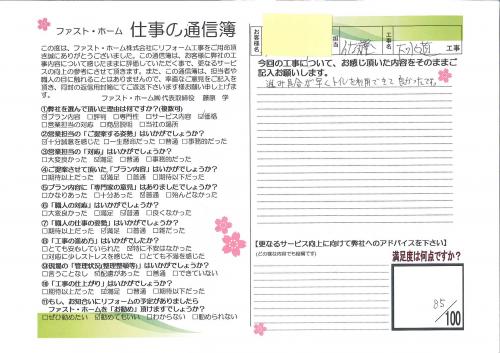 ファスト・ホーム 仕事の通信簿
この度は、ファスト・ホーム株式会社にリフォーム工事をご用命頂
き誠にありがとうございました。この通信簿は、お客様に弊社の工
事内容について感じたままに評価していただく事で、更なるサービ
スの向上の参考とさせて頂きます。また、この通信簿は、担当者や
職人の目に触れることはありませんので、率直なご意見をご記入
頂き、同封の返信用封筒にてご返送下さいます様お願い申し上げま
す。
ファスト・ホーム㈱代表取締役 藤原 学
①弊社を選んで頂いた理由は何ですか?(複数可)
□プラン内容 □評判 □専門性 □サービス内容 ☑価格
□営業担当の対応 □商品説明 □当社の場所
②営業担当の「ご提案する姿勢」はいかがでしょうか?
□十分誠意を感じた □一生懸命だった □普通 □事務的だった
③営業担当の「対応」はいかがでしょうか?
□大変良かった ☑満足 □普通 □事務的だった
④ご提案させて頂いた「プラン内容」はいかがでしょうか?
□期待以上だった ☑満足 □普通 □期待以下だった
⑤プラン内容に「専門家の意見」はありましたでしょうか?
□かなりあった □十分あった ☑普通 □殆んどなかった
⑥「職人の対応」はいかがでしょうか?
□大変良かった □満足 ☑普通 □良くなかった
⑦「職人の仕事の姿勢」はいかがでしょうか?
□期待以上だった □満足 ☑普通 □雑だった
⑧「工事の進め方」はいかがでしたか?
□とても安心していられた ☑特に不安はなかった
□対応に少しストレスを感じた □とても不満を感じた
⑨現場の「管理状況(整理整頓等)」はいかがでしょうか?
□言うことなし ☑配慮があった □普通 □できていない
⑩「工事の仕上がり」はいかがでしょうか?
□期待以上だった ☑満足 □普通 □期待以下だった
⑪もし、お知合いにリフォームの予定がありましたら
ファスト・ホームを「お勧め」頂けますでしょうか?
□ぜひ勧めたい ☑勧めてもいい □わからない □勧められない
お客様名
担当
工事
今回の工事について、お感じ頂いた内容をそのままご
記入お願いします。
進み具合が早くトイレを利用できて良かったです。
【更なるサービス向上に向けて弊社へのアドバイスを下さい】
(どの様な内容でも結構です)
満足度は何点ですか?
85
/100